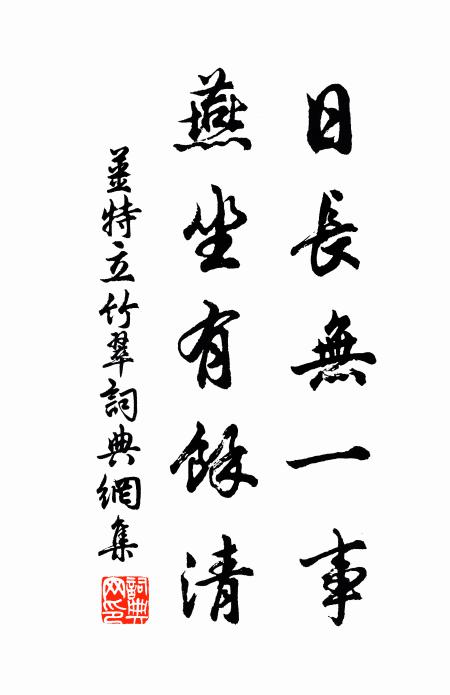 日長無一事
燕坐有餘清
姜特立竹翠詞典網集
詞典